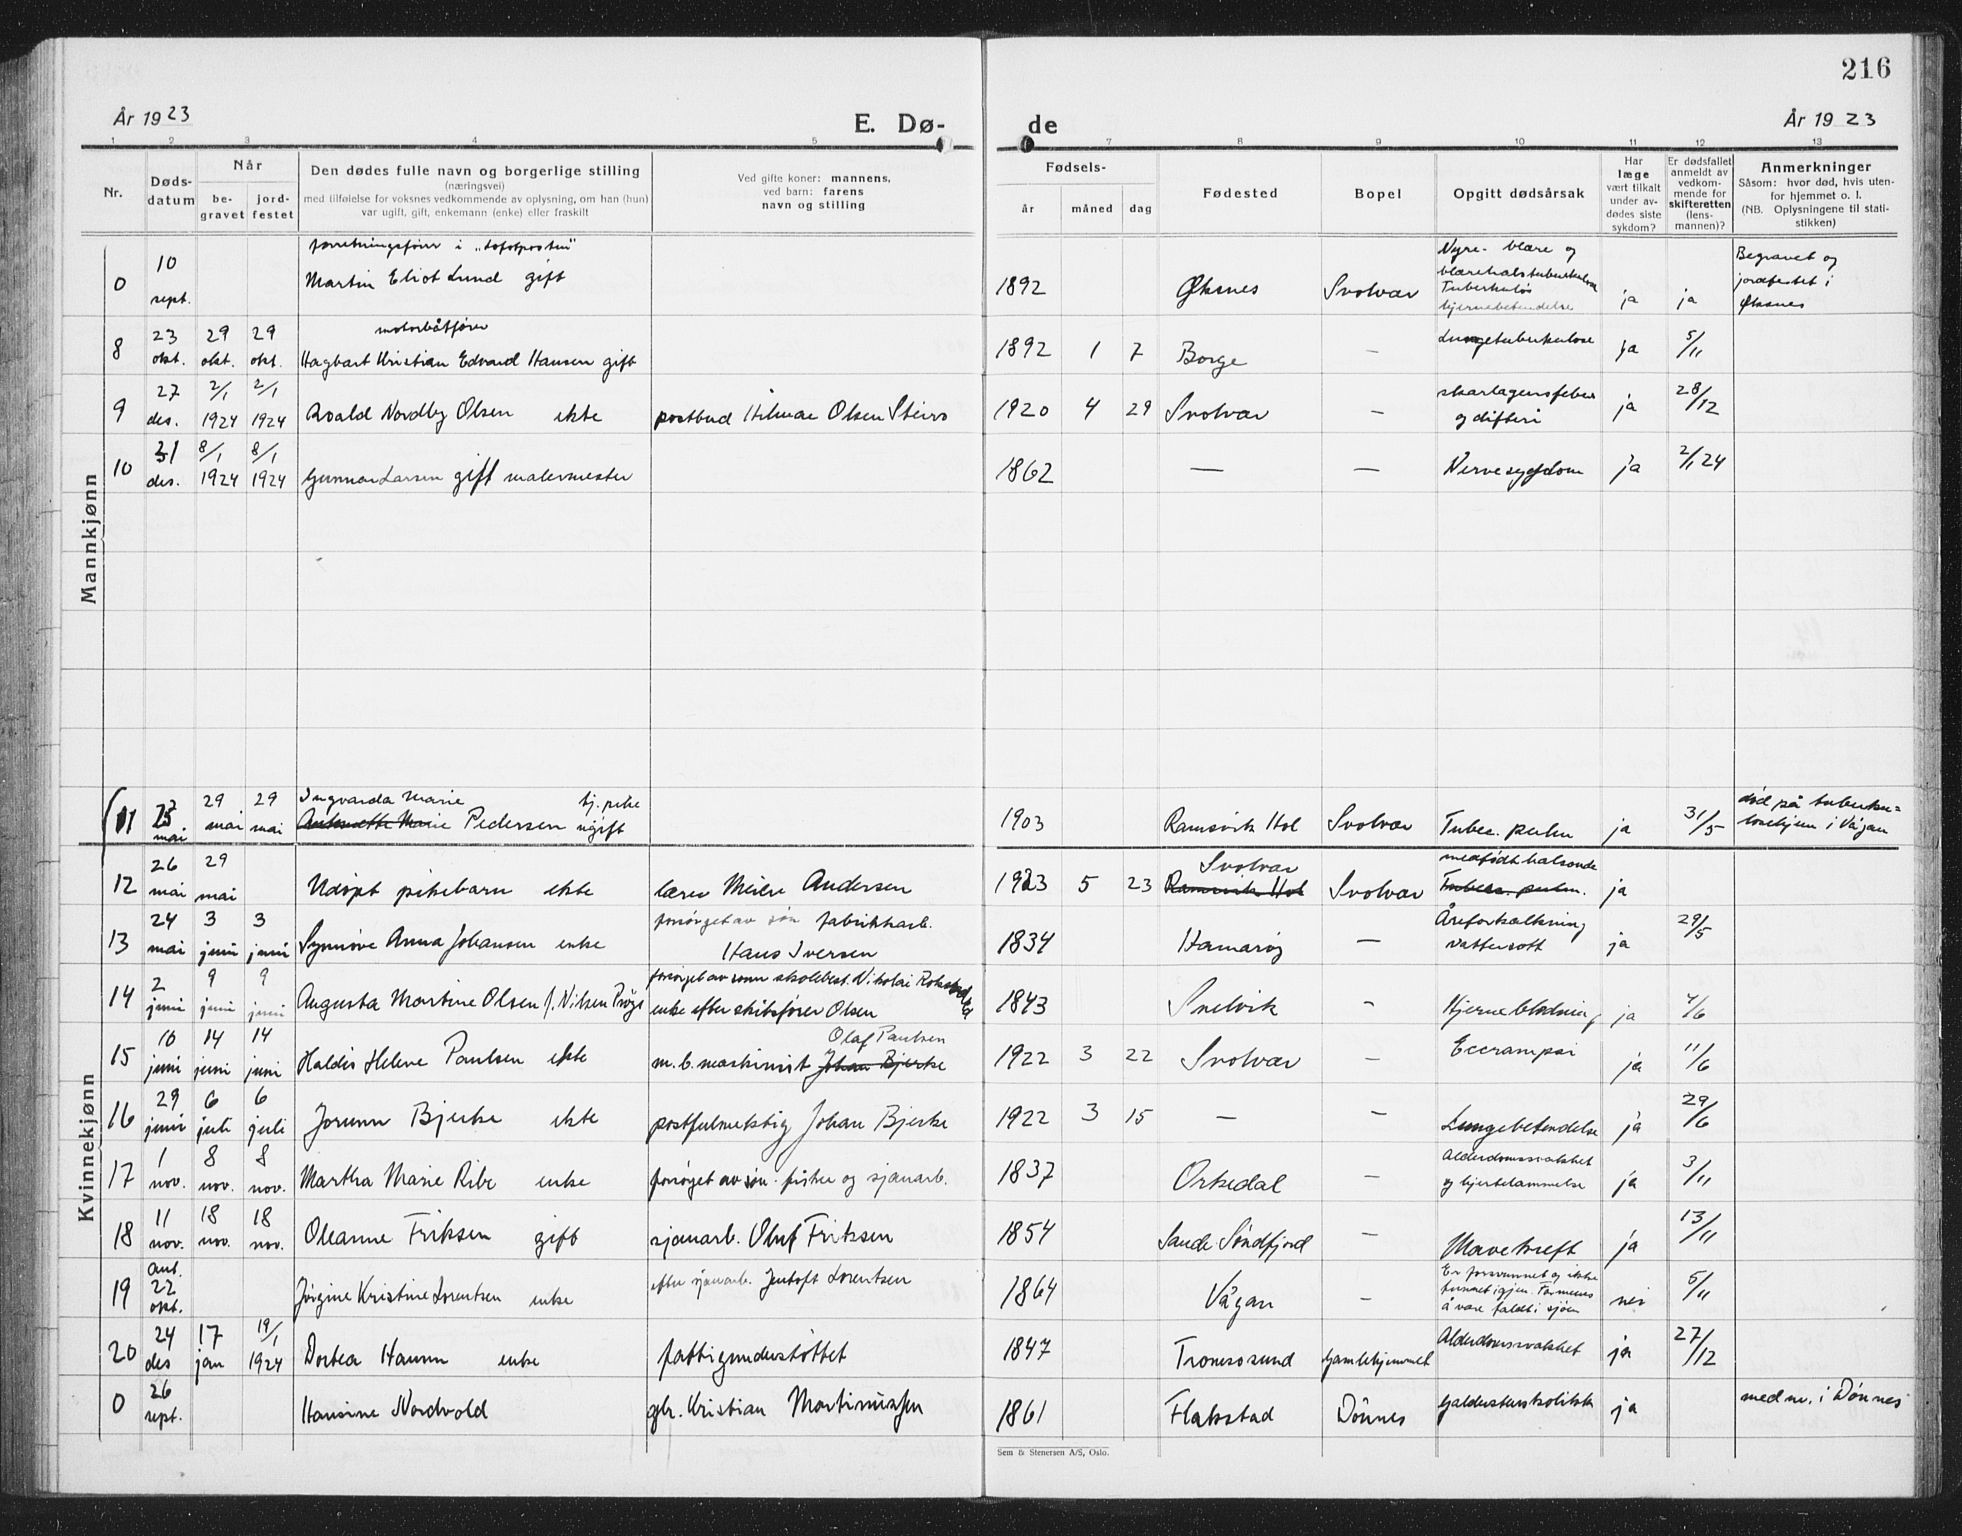 216
År 1923
E. Dø-
de
År 1923
1 2 3 4 5 7 8 9 10 11 12 13
Nr.
Døds-
datum
Når
be-
gravet
jord-
festet
Den dødes fulle navn og borgerlige stilling
(næringsvei)
med tilføielse for voksnes vedkommende av oplysning, om han (hun)
var ugift, gift, enkemann (enke) eller fraskilt
Ved gifte koner: mannens,
ved barn: farens
navn og stilling
Fødsels-
år måned dag
Fødested
Bopel
Opgitt dødsårsak
Har
læge
vært tilkalt
under av-
dødes siste
sykdom?
Er dødsfallet
anmeldt av
vedkom-
mende for
skifteretten
(lens-
mannen)?
Anmerkninger
Såsom: hvor død, hvis uten-
for hjemmet o. l.
(NB. Oplysningene til stati-
stikken)
Mannkjønn
0 10 sept. forretningsfører i "Lofotposten"
Martin Eliot Lund gift 1892 Øksnes Svolvær Nyre- blære og
blærehalstuberkulose
Tuberkuløs
hjernebetendelse ja ja Begravet og
jordfestet i
Øksnes
8 23 okt. 29 okt. 29 okt. motorbåtfører
Hagbart Kristian Edvard Hansen gift 1892 1 7 Borge — Lungetuberkulose ja 5/11
9 27 des. 2/1 1924 2/1 1924 Roald Nordby Olsen ekte postbud Hilmar Olsen Steiro 1920 4 29 Svolvær — skarlagensfeber
og difteri ja 28/12
10 31 des. 8/1 1924 8/1 1924 Gunnar Larsen gift malermester 1862 — — Nervesygdom ja 2/1 24
Kvinnekjønn
11 mai 29 mai 29 mai Ingvarda Marie tj. pike
Antonette Marie Pedersen ugift 1903 Ramsvik Hol Svolvær Tuberc. pulm ja 31/5 død på tuberku=
losehjem i Vågan
12 26 mai 29 mai Udøpt pikebarn ekte lærer Meier Andersen 1923 5 23 Svolvær
Ramsvik Hol Svolvær medfødt halsonde
Tuberc. pulm. ja
13 24 mai 3 juni 3 juni Synnøve Anna Johansen enke forsørget av søn fabrikkarb.
Hans Iversen 1834 Hamarøy — Åreforkalkning
vattersott ja 29/5
14 2 juni 9 juni 9 juni Augusta Martine Olsen f. Nilsen forsørget av sønn skolebest. Nikolai
enke efter skibsfører Olsen 1843 Snelvik — Hjerneblødning ja 4/6
15 10 juni 14 juni 14 juni Haldis Helene Paulsen ekte Olaf Paulsen
m.b. maskinist Johan Bjerke 1922 3 22 Svolvær — Eccrampsi ja 11/6
16 29 juni 6 juli 6 juli Jorunn Bjerke ekte postfulmektig Johan Bjerke 1922 3 15 — — Lungebetendelse ja 29/6
17 1 nov. 8 nov. 8 nov. Martha Marie Ribe enke forsørget av søn fisker og sjøarb. 1837 Orkedal — Alderdomssvakhet
og hjertelammelse ja 3/11
18 11 nov. 18 nov. 18 nov. Oleanne Friksen gift sjøarb. Oluf Friksen 1854 Sande Søndfjord — Mavekreft ja 13/11
19 ant. 22 okt. Jørgine Kristine Lorentsen enke efter sjøarb. Jentoft Lorentsen 1864 Vågan — Er forsvunnet og ikke
funnet igjen. Formenes
å være faldt i sjøen nei 5/11
20 24 des 17 jan 19/1 1924 Dortea Hansen enke fattigunderstøttet 1847 Tromsosund Gamlehjemmet Alderdomssvakhet ja 27/12
0 26 sept. Hansine Nordvold gbr. Kristian Martinussen 1861 Flakstad Dønnes Galdestenskolikk ja med nr. i Dønnes
Sem & Stenersen A/S, Oslo.